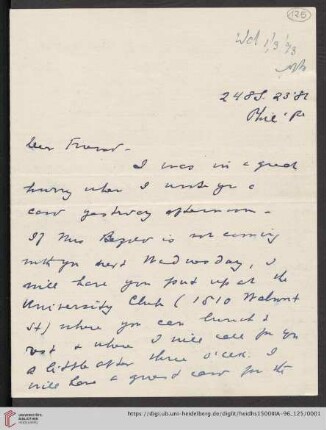 125
248 S. 23rd St
Phil. Pa
Dear Friend -
I was in a great
hurry when I wrote you a
card yesterday afternoon -
If Mrs is not coming
with you next Wednesday, I
will have you put up at the
University Club (1510 Walnut
St) where you can lunch &
rest & where I will call for you
a little after three o'clock. I
will leave a guest card for the
UNIVERSITÄTS-
BIBLIOTHEK
HEIDELBERG
https://digi.ub.uni-heidelberg.de/diglit/heidhs15004IIA-96_125/0001